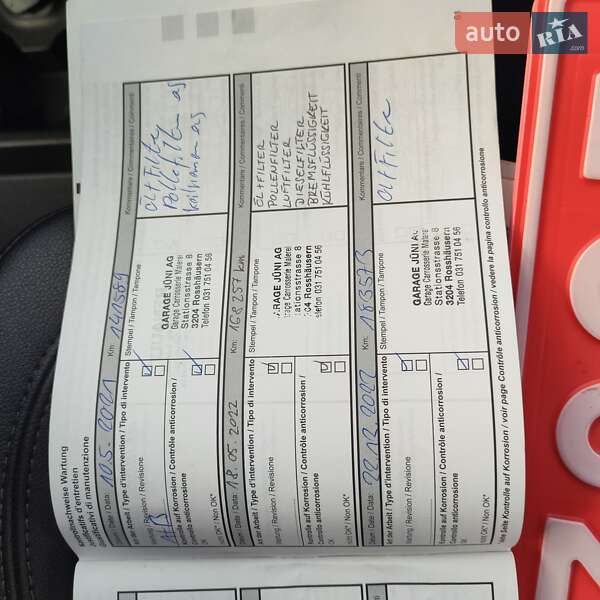 auto RIA .com
Kontrollnachweise Wartung
d'entretien
di manutenzione
Datum / Date / Data: 10.5.2021 Km: 141589
Art der Arbeit / Type d'intervention / Tipo di intervento
Stempel / Tampon / Tampone
Kommentare / Commentaires / Commenti
Wartung / Revision / Revisione
Kontrolle auf Korrosion / Contrôle anticorrosion /
Controllo anticorrosione
OK
Nicht OK* / Non OK*
GARAGE JÜNI AG
Garage Carrosserie Malerei
Stationsstrasse 8
3204 Rosshäusern
Telefon 031 751 04 56
Öl + Filter
Datum / Date / Data: 18.05.2022 Km: 168257 km
Art der Arbeit / Type d'intervention / Tipo di intervento
Stempel / Tampon / Tampone
Kommentare / Commentaires / Commenti
Wartung / Revision / Revisione
Kontrolle auf Korrosion / Contrôle anticorrosion /
Controllo anticorrosione
OK
Nicht OK* / Non OK*
GARAGE JÜNI AG
Garage Carrosserie Malerei
Stationsstrasse 8
3204 Rosshäusern
Telefon 031 751 04 56
ÖL+FILTER
POLLENFILTER
LUFTFILTER
DIESELFILTER
BREMSFLÜSSIGKEIT
KÜHLFLÜSSIGKEIT
Datum / Date / Data: 22.12.2022 Km: 183573
Art der Arbeit / Type d'intervention / Tipo di intervento
Stempel / Tampon / Tampone
Kommentare / Commentaires / Commenti
Wartung / Revision / Revisione
Kontrolle auf Korrosion / Contrôle anticorrosion /
Controllo anticorrosione
OK
Nicht OK* / Non OK*
GARAGE JÜNI AG
Garage Carrosserie Malerei
Stationsstrasse 8
3204 Rosshäusern
Telefon 031 751 04 56
Öl + Filter
*siehe Seite Kontrolle auf Korrosion / voir page Contrôle anticorrosion / vedere la pagina controllo anticorrosione